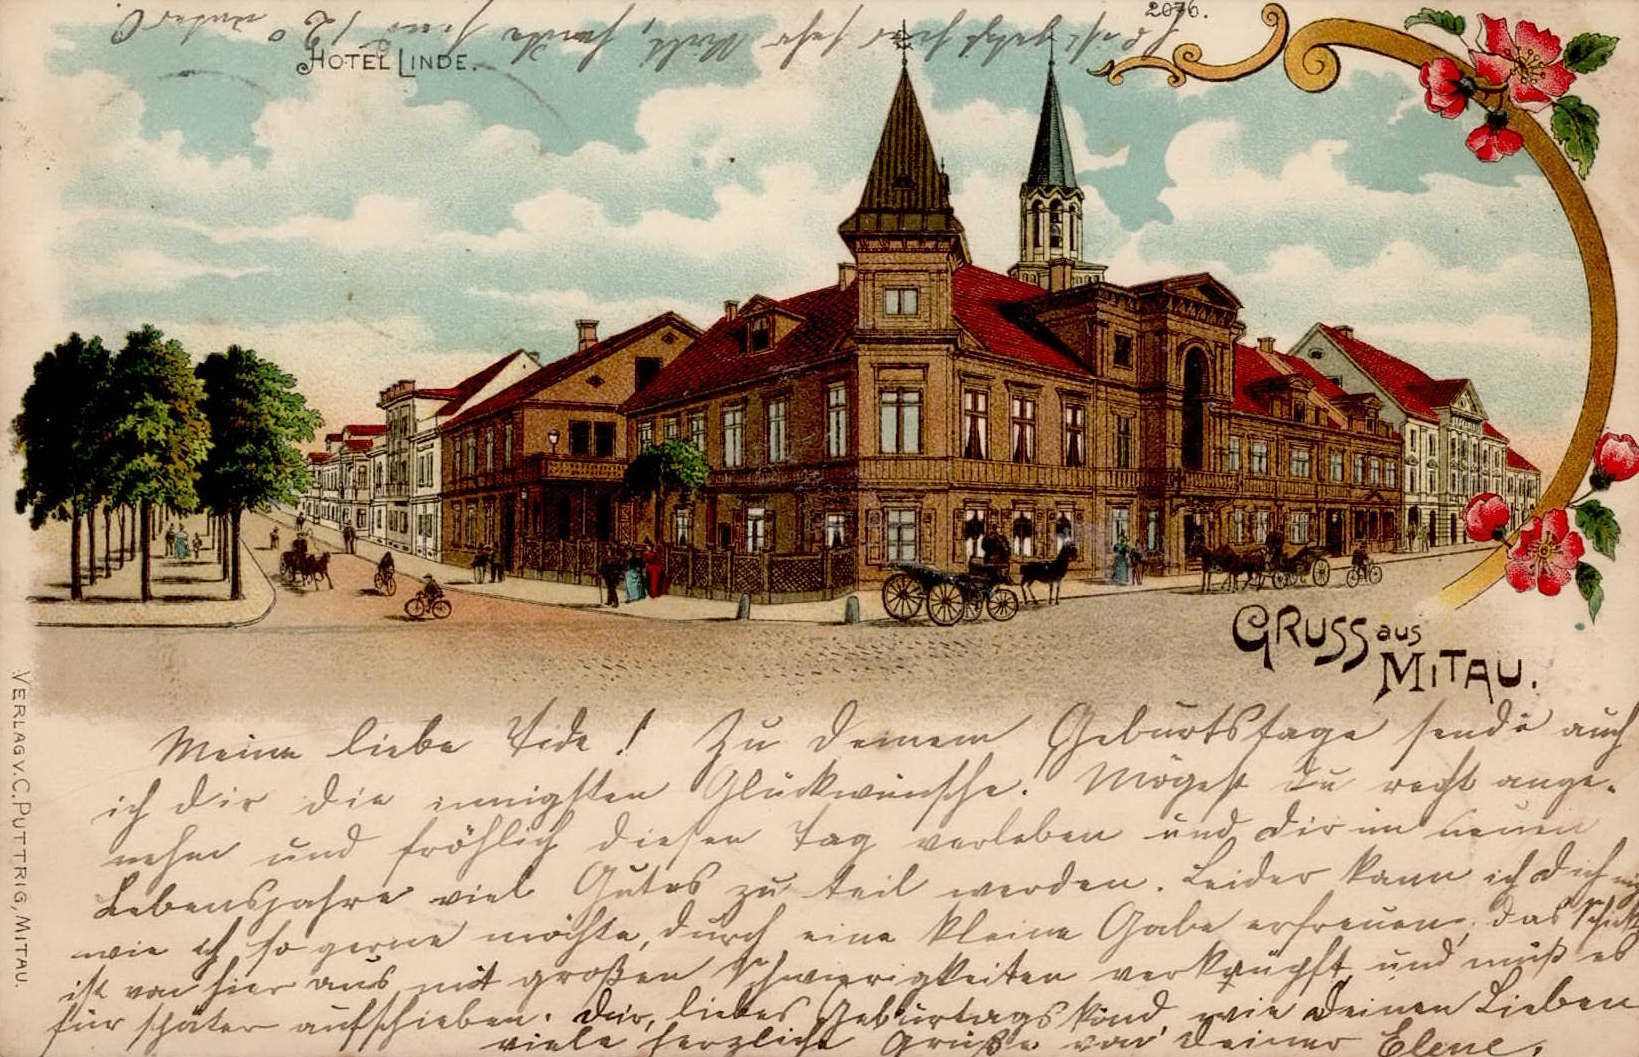 2076.
HOTEL LINDE.
Es ist jetzt hier sehr kalt, heute sind 12° unter 0
GRUSS aus
MITAU.
VERLAG V. C. PUTTRIG, MITAU.
Meine liebe Tide! Zu Deinem Geburtstage sende auch
ich dir die innigsten Glückwünsche. Mögest Du recht ange-
nehm und fröhlich diesen Tag verleben und dir im neuen
Lebensjahre viel Gutes zu teil werden. Leider kann ich Dich
wie ich so gerne möchte, durch eine kleine Gabe erfreuen, das
ist von hier aus mit großen Schwierigkeiten verknüpft und muß es
für später aufschieben. Dir, liebes Geburtagskind, wie Deinen Lieben
viele herzliche Grüße von Deiner Elene.